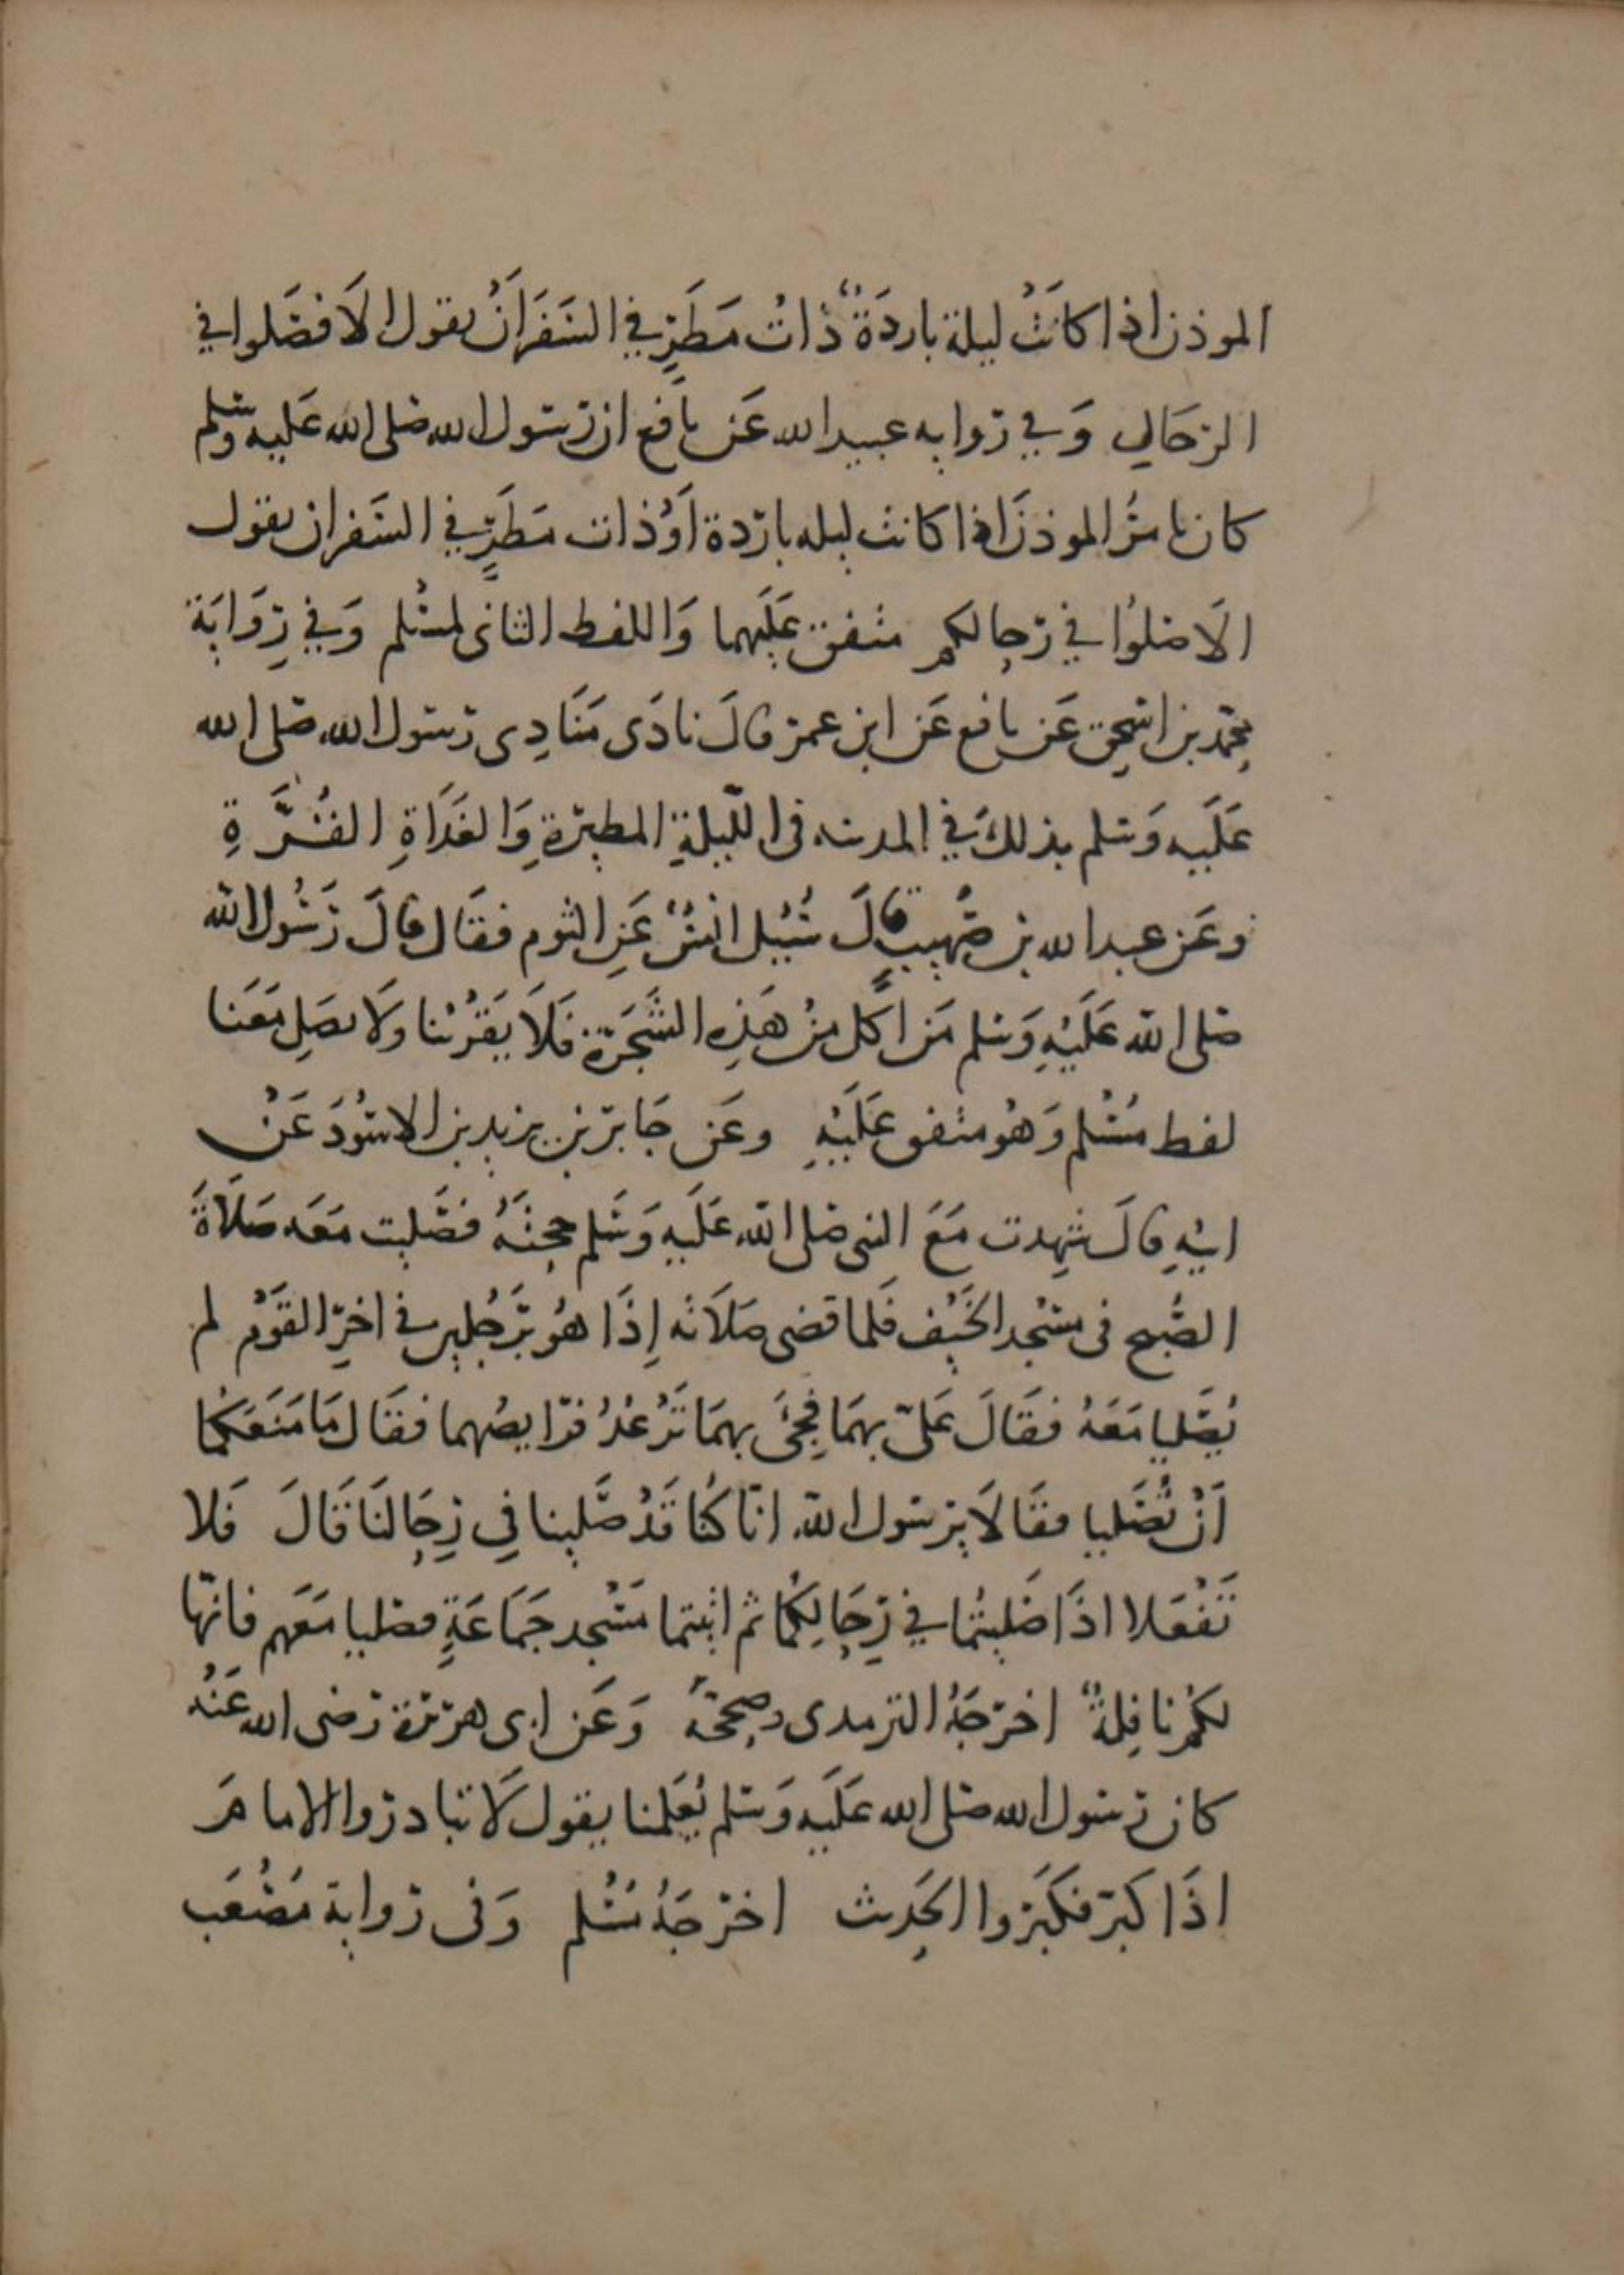 الموذن اذا كانَتْ ليلة باردَةٌ ذاتُ مَطَرٍ في السَفَرِ اَنْ يقول الاَ فصَلوا في
الرحَالِ وَفي روايه عبيد الله عَن نافع ان رسول الله صلى الله عَليه وسَلم
كان يامرُ الموذنَ اذا كانت ليله باردة اَوْ ذات مَطَرٍ في السَفر ان يقول
الاَ صلوُا في رحالكم متفق عَلَيهما وَاللفظ الثانى لمسْلم وَفي رِوَايَة
محمد بن اسحق عَن نافع عَن ابن عمر قالَ نادَى مُنَادِى رسول الله صلى الله
عَلَيه وَسلم بذلكَ في المدينه فى اللّيلةِ المطيرة وَالغَدَاةِ القَرَّةِ
وعَن عبد الله بن صُهيبٍ قالَ سُيُل انسٌ عَنِ الثوم فقَال قالَ رَسُول الله
صلى الله عَلَيْهِ وَسلم مَن اكل مِنْ هَذِهِ الشَجَرَة فَلاَ يَقرُبْنا وَلاَ يصَلِ مَعَنا
لفظ مُسْلم وَهُو متفق عَلَيْهِ وعَن جَابر بن يزيد بن الاسْوَدَ عَنْ
ابيْهِ قالَ شهِدت مَعَ النبى صلى الله عَلَيه وَسَلم حجتَهُ فصَليت مَعَه صَلاَةَ
الصُبح فى مسْجد الخَيْف فَلما قضى صَلاَته اِذَا هُو برَجُلين في اخرِ القَوْم لم
يُصَليا مَعَهُ فقَالَ عَلىّ بهمَا فجِئَ بهمَا تَرْعُدُ فرايصُهما فقَال مَا مَنَعَكما
اَنْ تُصَليا فقَالاَ يرسول الله انّا كُنا قَدْ صَلينا فِي رِحَالنَا قَالَ فَلا
تَفْعَلا اذَا صَليتُما في رِحَالِكُما ثم اتيتما مَسْجد جَمَاعَةٍ فصَليا مَعَهم فانّها
لكمْ نافِلةٌ اخرجَهُ الترمدى وصححَهُ وَعَن ابى هريرة رَضى الله عَنْه
كان رسول الله صلى الله عَلَيه وَسلم يُعَلمنا يقول لاَ تبادروا الامامَ
اذَا كبر فكَبَروا الحَديث اخرجَهُ مُسْلم وَفى رواية مَصْعَب